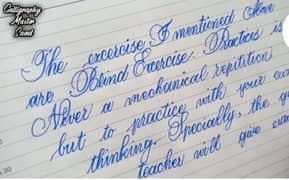 Calligraphy
Master
Saad
The excercise I mentioned above
are Blind Exercise. Practices is
Never a mechanical repitition
but to practice with your own
thinking. Specially, the
teacher will give
30